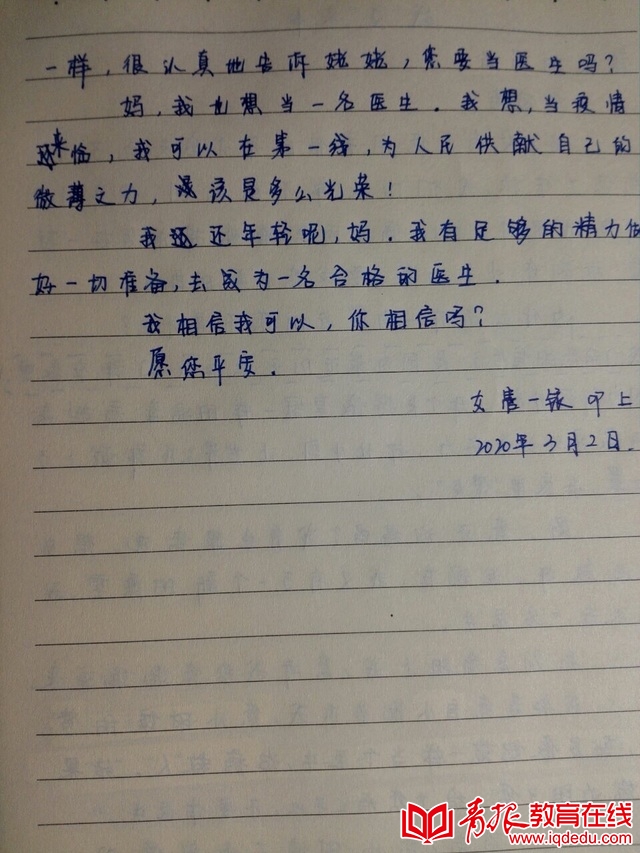 一样,很认真地告诉姥姥,您要当医生吗?
妈,我也想当一名医生.我想,当疫情
来临,我可以在第一线,为人民供献自己的
微薄之力,该是多么光荣!
我还年轻呢,妈.我有足够的精力做
好一切准备,去成为一名合格的医生.
我相信我可以,你相信吗?
愿您平安.
女 一 叩上
2020年3月2日.
青报教育在线
www.iqdedu.com